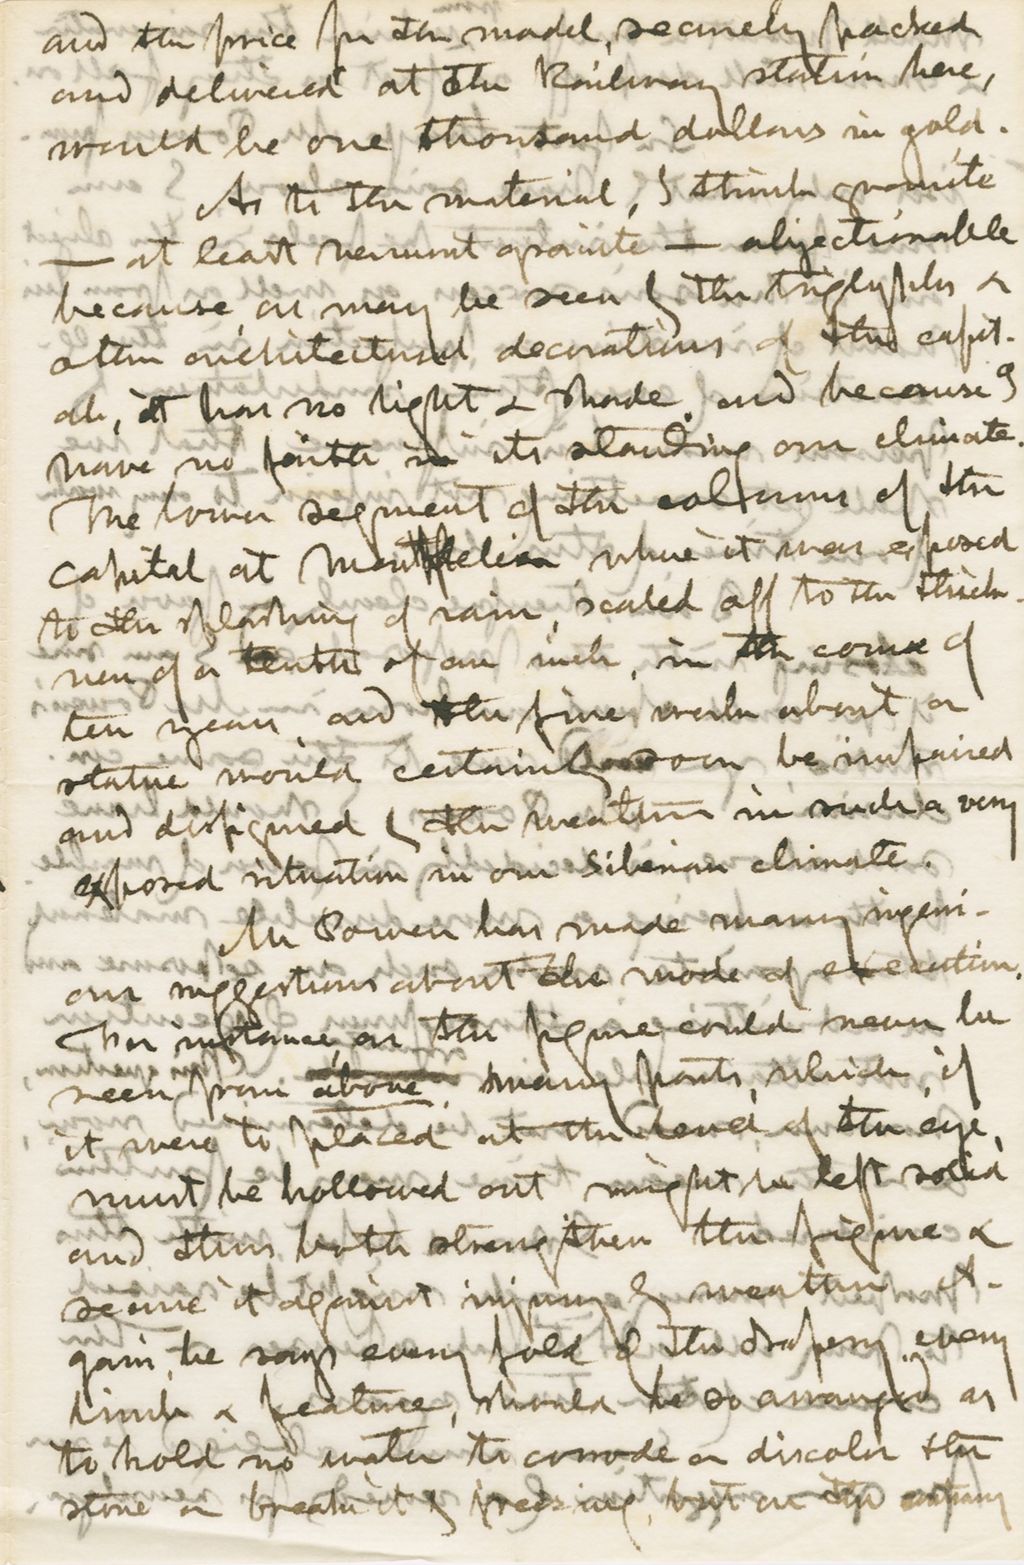 and the price for the model, securely packed
and delivered at the Railway station here,
would be one thousand dollars in gold.
As to the material, I think granite
— at least Vermont granite — objectionable
because, as may be seen by the triglyphs &
other architectural decorations of the capit-
als, it has no light & shade, and because I
have no faith in its standing our climate.
The lower segment of the columns of the
capital at Montpelier where it was exposed
to the splashing of rain, scaled off to the thick-
ness of a tenth of an inch, in the course of
ten years, and the fine work about a
statue would certainly soon be impaired
and disfigured by the weather in such a very
exposed situation, in our Siberian climate.
Mr Powers has made many ingeni-
ous suggestions about the mode of execution.
For instance, as the figure could never be
seen from above, many parts, which, if
it were to placed at the level of the eye,
must be hollowed out might be left solid
and thus both strengthen the figure &
secure it against injury by weather. A-
gain, he says every fold of the drapery, every
limb & feature, should be so arranged as
to hold no water to corrode or discolor the
stone or break it by freezing, but on the contrary